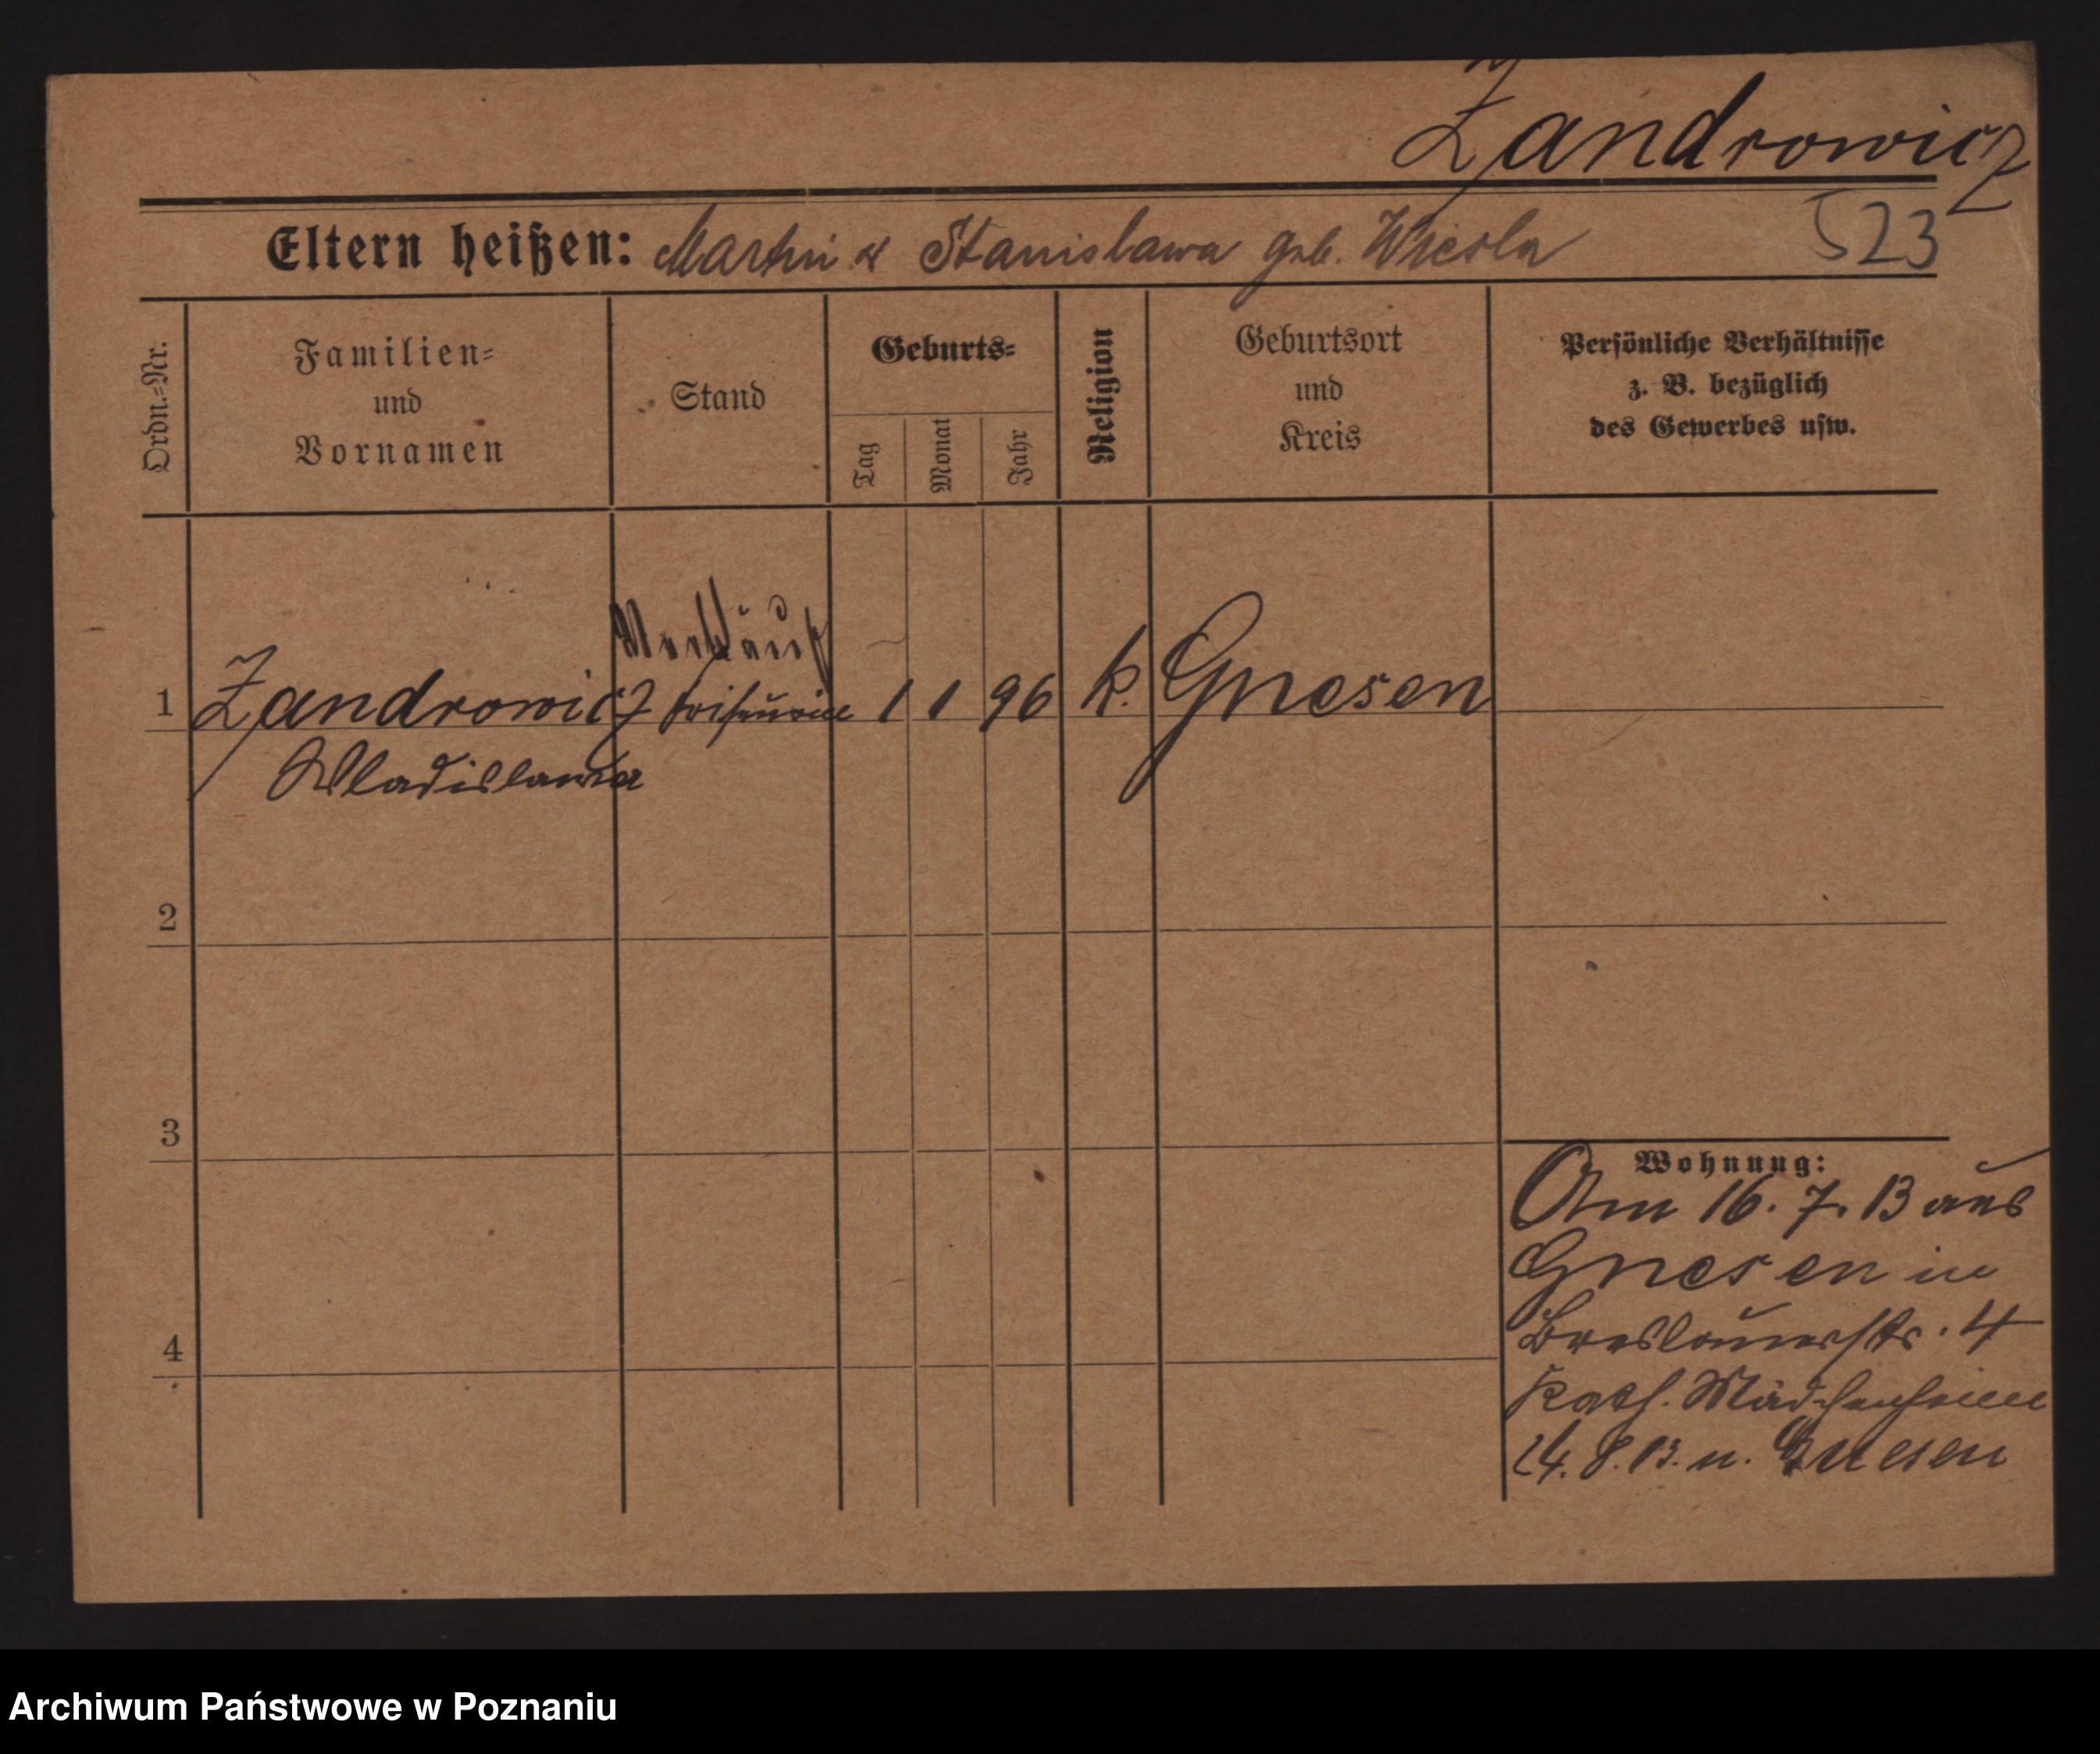 Zandrowicz
Eltern heißen: Martin & Stanislawa geb.
523
Ordn.-Nr.
Familien-
und
Vornamen
Stand
Geburts-
Tag
Monat
Jahr
Religion
Geburtsort
und
Kreis
Persönliche Verhältnisse
z. B. bezüglich
des Gewerbes usw.
1 Zandrowicz 1 1 96 k. Gnesen
Wladislawa
2
3
4
Wohnung:
Am 16. 7. 13 aus
Gnesen in
Breslauerstr. 4
Kath. Mädchenheim
24. 8. 13. n. Gnesen
Archiwum Państwowe w Poznaniu